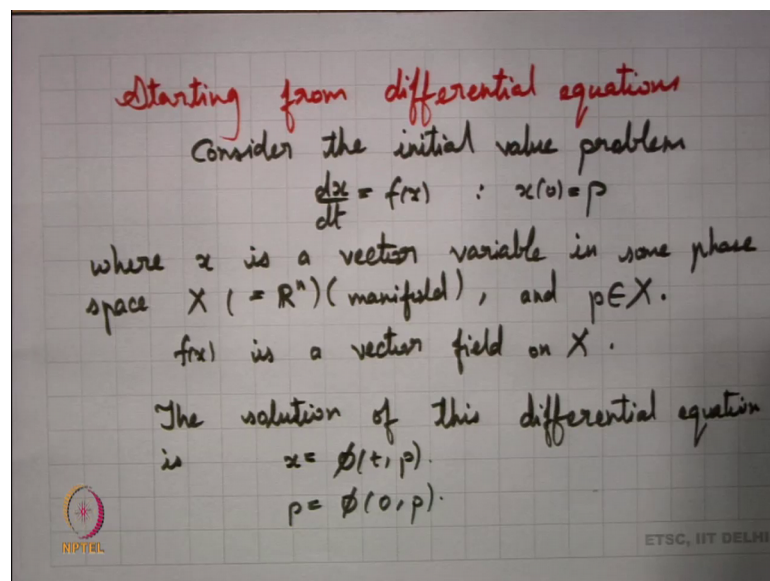 Starting from differential equations
Consider the initial value problem
dx/dt = f(x) : x(0) = p
where x is a vector variable in some phase
space X ( = Rⁿ) ( manifold ), and p ∈ X.
f(x) is a vector field on X.
The solution of this differential equation
is x = ϕ(t, p).
p = ϕ(0, p).
NPTEL
ETSC, IIT DELHI